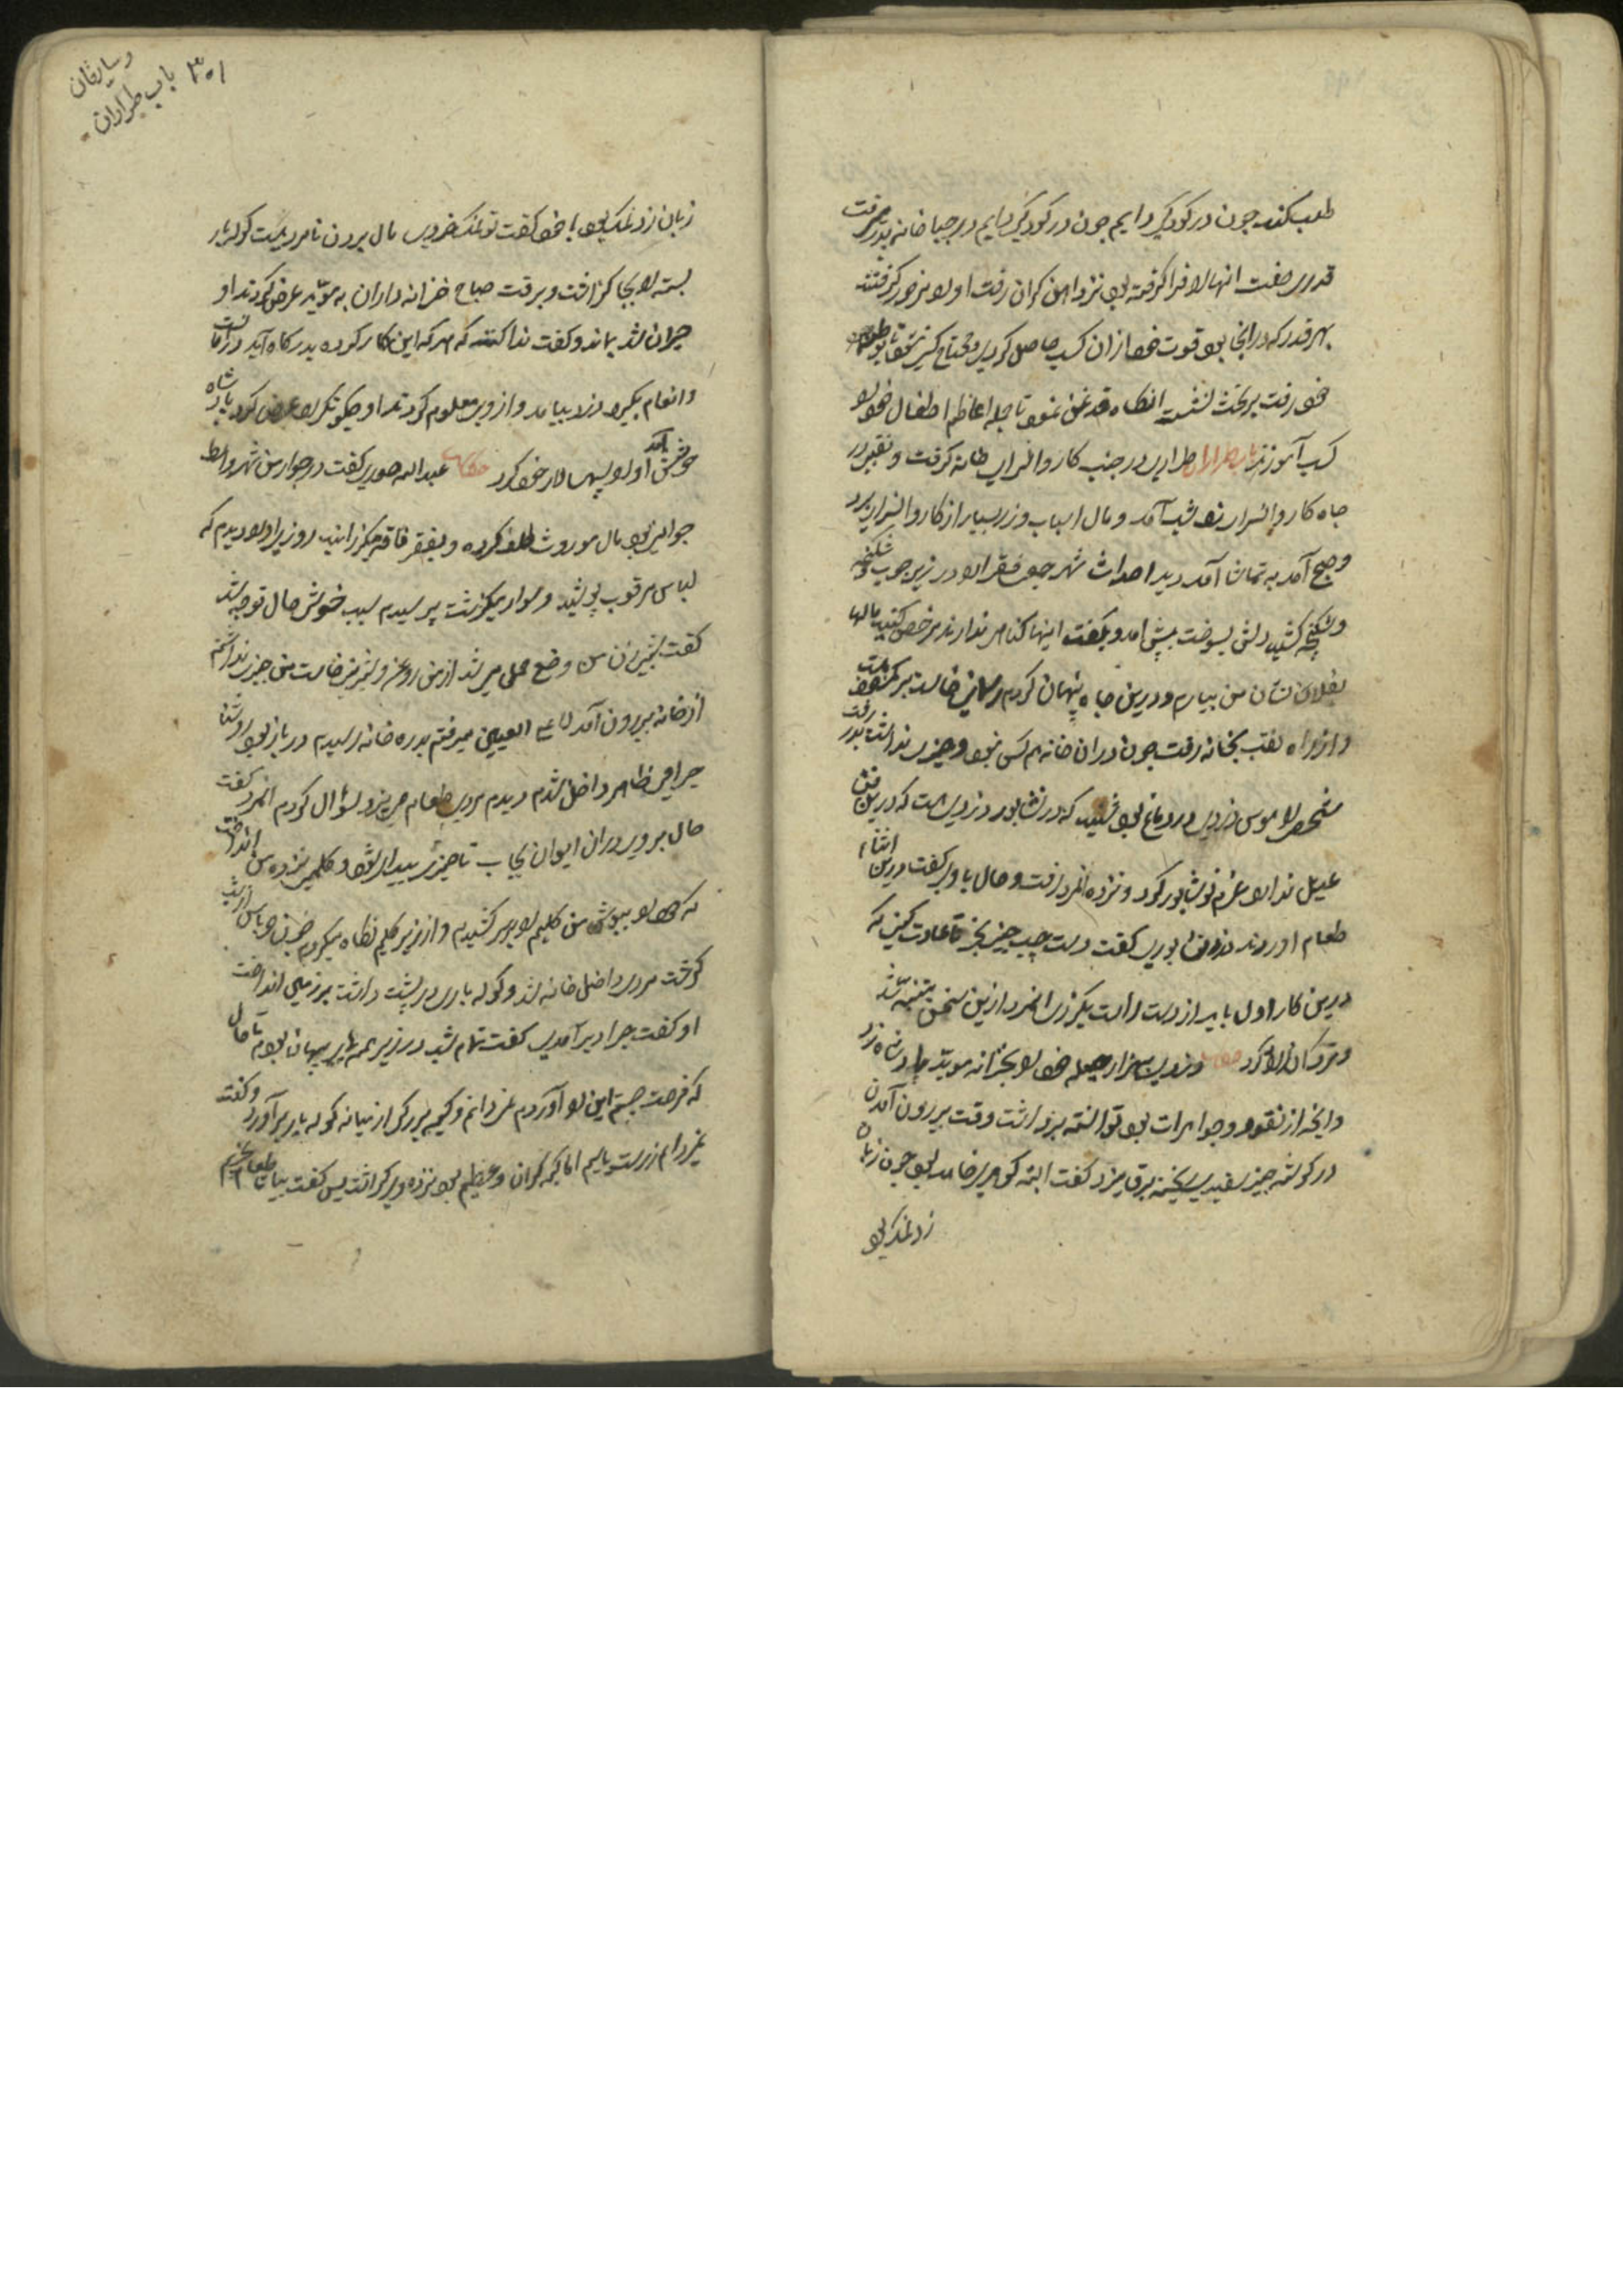 طلب کنند چون در کودکی دایم چون در کودکی دایم در جبا خانه پدر میرفت
قدری صفت انها را فرا گرفته بود نزد آهن کران رفت او را بمزدور گرفتند
بهر قدر که در انجا بود قوت خود ازان کسب حاصل کردی و محتاج کسی نشد تا بوطن
خود رفت بر تخت نشست انگاه قدغن نمود تا جمله اعاظم اطفال خود را
کسب آموزند باب طراران طراری در جنب کاروانسرای خانه گرفت و نقبی در
چاه کاروانسرای زد شب آمد و مال اسباب و زر بسیار از کاروانسرای برد
و صبح آمد به تماشا آمد دید احداث شهر جمع فقرا را در زیر چوب و شکنجه
و شکنجه کشید دلش بسوخت پیش آمد و بگفت اینها گناهی ندارند مرخص کنید مالها
بفلان نشان من بیارم و درین چاه پنهان کردم
و ازراه نقب بخانه رفت چون دران خانه هم کس نبود و چیزی نداشت بدر رفت
شخصی را هوس دزدی در دماغ بود شنید که در نشابور دزدی هست که درین فن
عدیل ندارد عزم نیشابور کرد و نزد آنمرد رفت و حال با وی گفت درین اثناء
طعام اوردند دزد نشابوری گفت دست چپ چیزی بخور تا عادت کنی که
درین کار اول باید از دست راست بگذری آنمرد ازین سخن متنبه شد
و ترک ان کار کرد حکایت دزدی بهزار حیله خود را بخزانه موید پادشاه زد
و انچه از نقود و جواهرات بود توانسته برداشت وقت بیرون آمدن
در گوشه چیز سفیدی برق میزد گفت البته گوهری خواهد بود چون زبان
زد نمک بود
۳۰۱
باب طراران
و سارقان
زبان زد نمک بود با خود گفت تو نمک خوردی مال بردن نامردیست کوله بار
بسته را بجا گذاشت و برفت صباح خزانه داران به موید عرض کردند او
حیران شد بماند و گفت ندا کنند که هر که این کار کرده بدرگاه آید در امانست
و انعام بگیرد دزد بیامد و از وی معلوم کردند او چگونگی را عرض کرد پادشاه
خوشش آمد او را سپهسالار خود کرد حکایت عبدالله صوری گفت در جوار من شهر واسط
جوانی بود مال موروث تلف کرده و بفقر فاقه میگذرانید روزی او را دیدم که
لباس مرغوب پوشیده و سوار میگذشت پرسیدم سبب خوش حال تو چه شد
گفت شبی زن من وضع حملی می شد از من روغن و شیرینی خواست من چیزی نداشتم
از خانه بیرون آمد میرفتم بدره خانه رسیدم در باز بود و روشنا
چراغی ظاهر داخل شدم دیدم مردی طعام می پزد سؤال کردم آنمرد گفت
حال برو در ان ایوان بخاب تا چیزی بیدار شود و کلیمی نزد من انداخت
که خود را بپوش من کلیم را بر سر کشیدم و از زیر کلیم نگاه میکردم چون پاس از شب
گذشت مردی داخل خانه شد و کوله باری در پشت داشت بر زمین انداخت
او گفت چرا دیر آمدی گفت تمام شب در زیر پنهان بودم تا حال
که فرصت جستم این را آوردم نمیدانم و کیسه بزرگی از میانه کوله بار برآورد و گفت
نمیدانم زر است یا سیم اما کیسه گران و عظیم بود نزد وی گذاشت پس گفت بیا تا طعام بخوریم